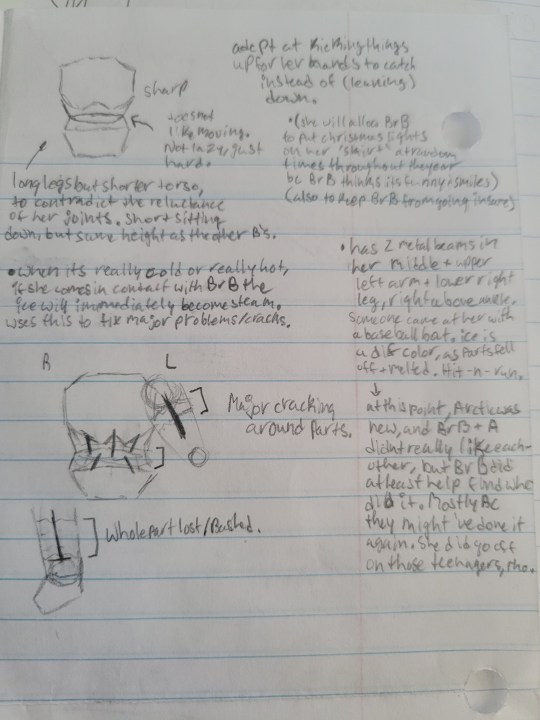 adept at kicking things
up for her boards to catch
instead of (leaning)
down.
sharp
does not
like moving.
Not lazy, just
hard.
• (she will allow BrB
to put christmas lights
on her "skirt" at random
times throughout the year
bc BrB thinks its funny + smiles)
(also to keep BrB from going insane)
long legs but shorter torso,
to contradict the reluctance
of her joints. Short sitting
down, but same height as the other B's.
• when its really cold or really hot,
if she comes in contact with BrB the
ice will immediately become steam.
uses this to fix major problems/cracks.
• has 2 metal beams in
her middle + upper
left arm + lower right
leg, right above ankle.
someone came at her with
a baseball bat. ice is
a dif color, as parts fell
off + melted. Hit-n-run.
at this point, Arctic was
new, and BrB + A
didnt really like each-
other, but BrB did
at least help find who
did it. Mostly Bc
they might've done it
again. She did go off
on those teenagers, tho.
R L
Major cracking
around parts.
whole part lost/Bashed.